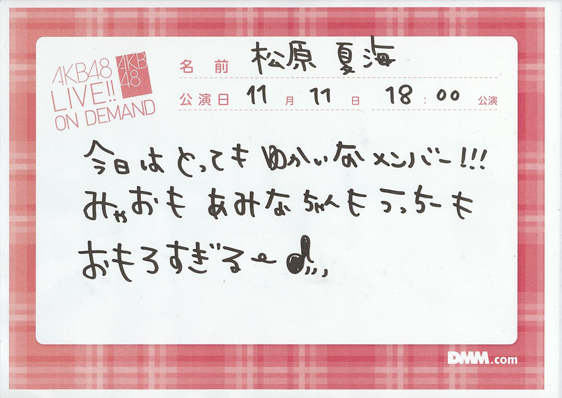 AKB48
LIVE!!
ON DEMAND
AKB
48
名前 松原 夏海
公演日 11月11日 18:00公演
今日は とっても ゆかいな メンバー!!!
みゃおも あみなちゃんも うっちーも
おもろすぎる〜♪,,,
DMM.com